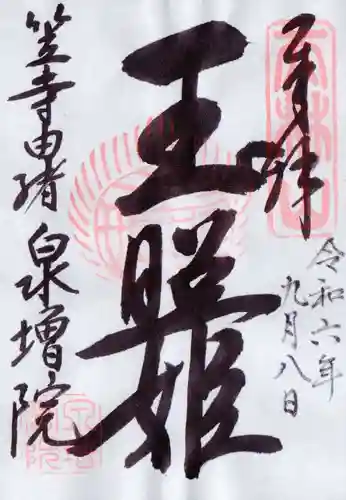 奉拝
令和六年
九月八日
玉照姫
笠寺由緒
泉増院